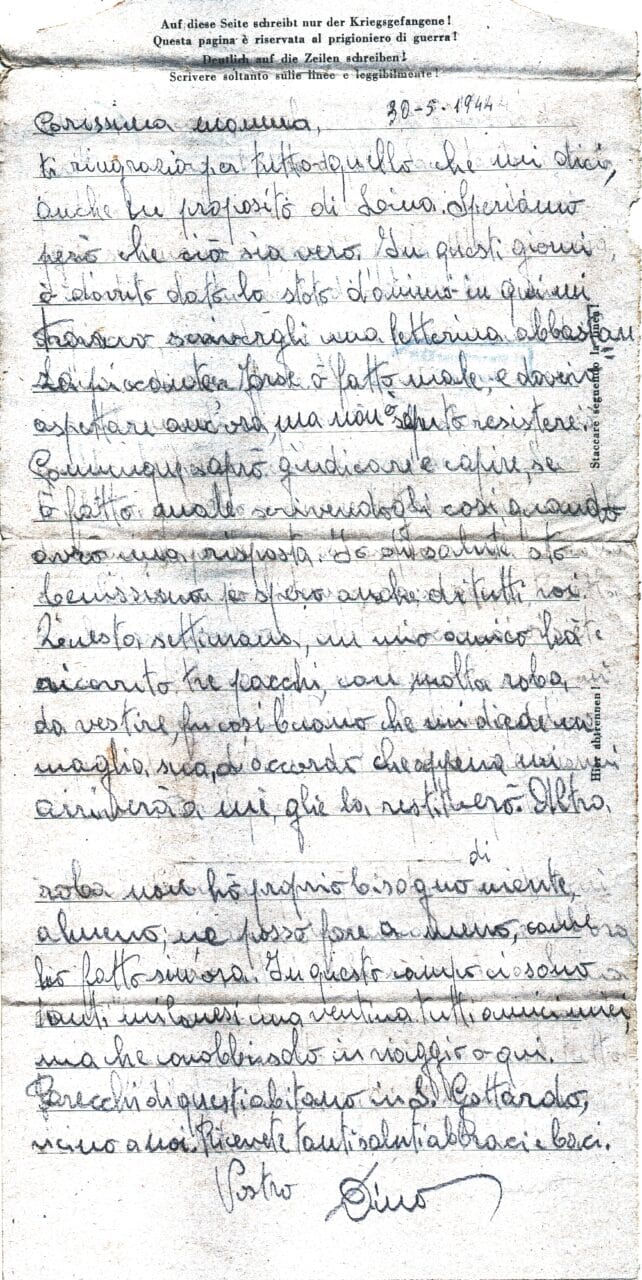 Auf diese Seite schreibt nur der Kriegsgefangene!
Questa pagina è riservata al prigioniero di guerra!
Deutlich auf die Zeilen schreiben!
Scrivere soltanto sulle linee e leggibilmente!
30-5-1944
Carissima mamma,
ti ringrazio per tutto quello che mi dici,
anche in proposito di Speriamo
però che ciò sia vero. In questi giorni
ò dovuto dato lo stato d'animo in qui mi
trovavo scriverghi una letterina abbastan
za piccante. Forse ò fatto male, e dovevo
aspettare ancora, ma non ò saputo resistere.
Comunque saprò giudicare e capire, se
ò fatto male scrivendoghi così quando
avrò una risposta. Io di salute sto
benissimo e spero anche di tutti voi.
Questa settimana, un mio amico
ricevuto tre pacchi, con molta roba
da vestire, fu così buono che mi diede una
maglia sua, d'accordo che appena mi
arriverà a me, glie la restituerò. Altra
di
roba non hò proprio bisogno niente,
almeno; ne posso fare a meno, come
ho fatto sin'ora. In questo campo ci sono
tanti milanesi una ventina tutti amici miei,
ma che conobbi solo in viaggio o qui.
Parecchi di questi abitano in S. Gottardo,
vicino a noi. Ricevete tanti saluti abbracci e baci.
Vostro Dino
Staccare seguendo la linea!
Hier abtrennen!